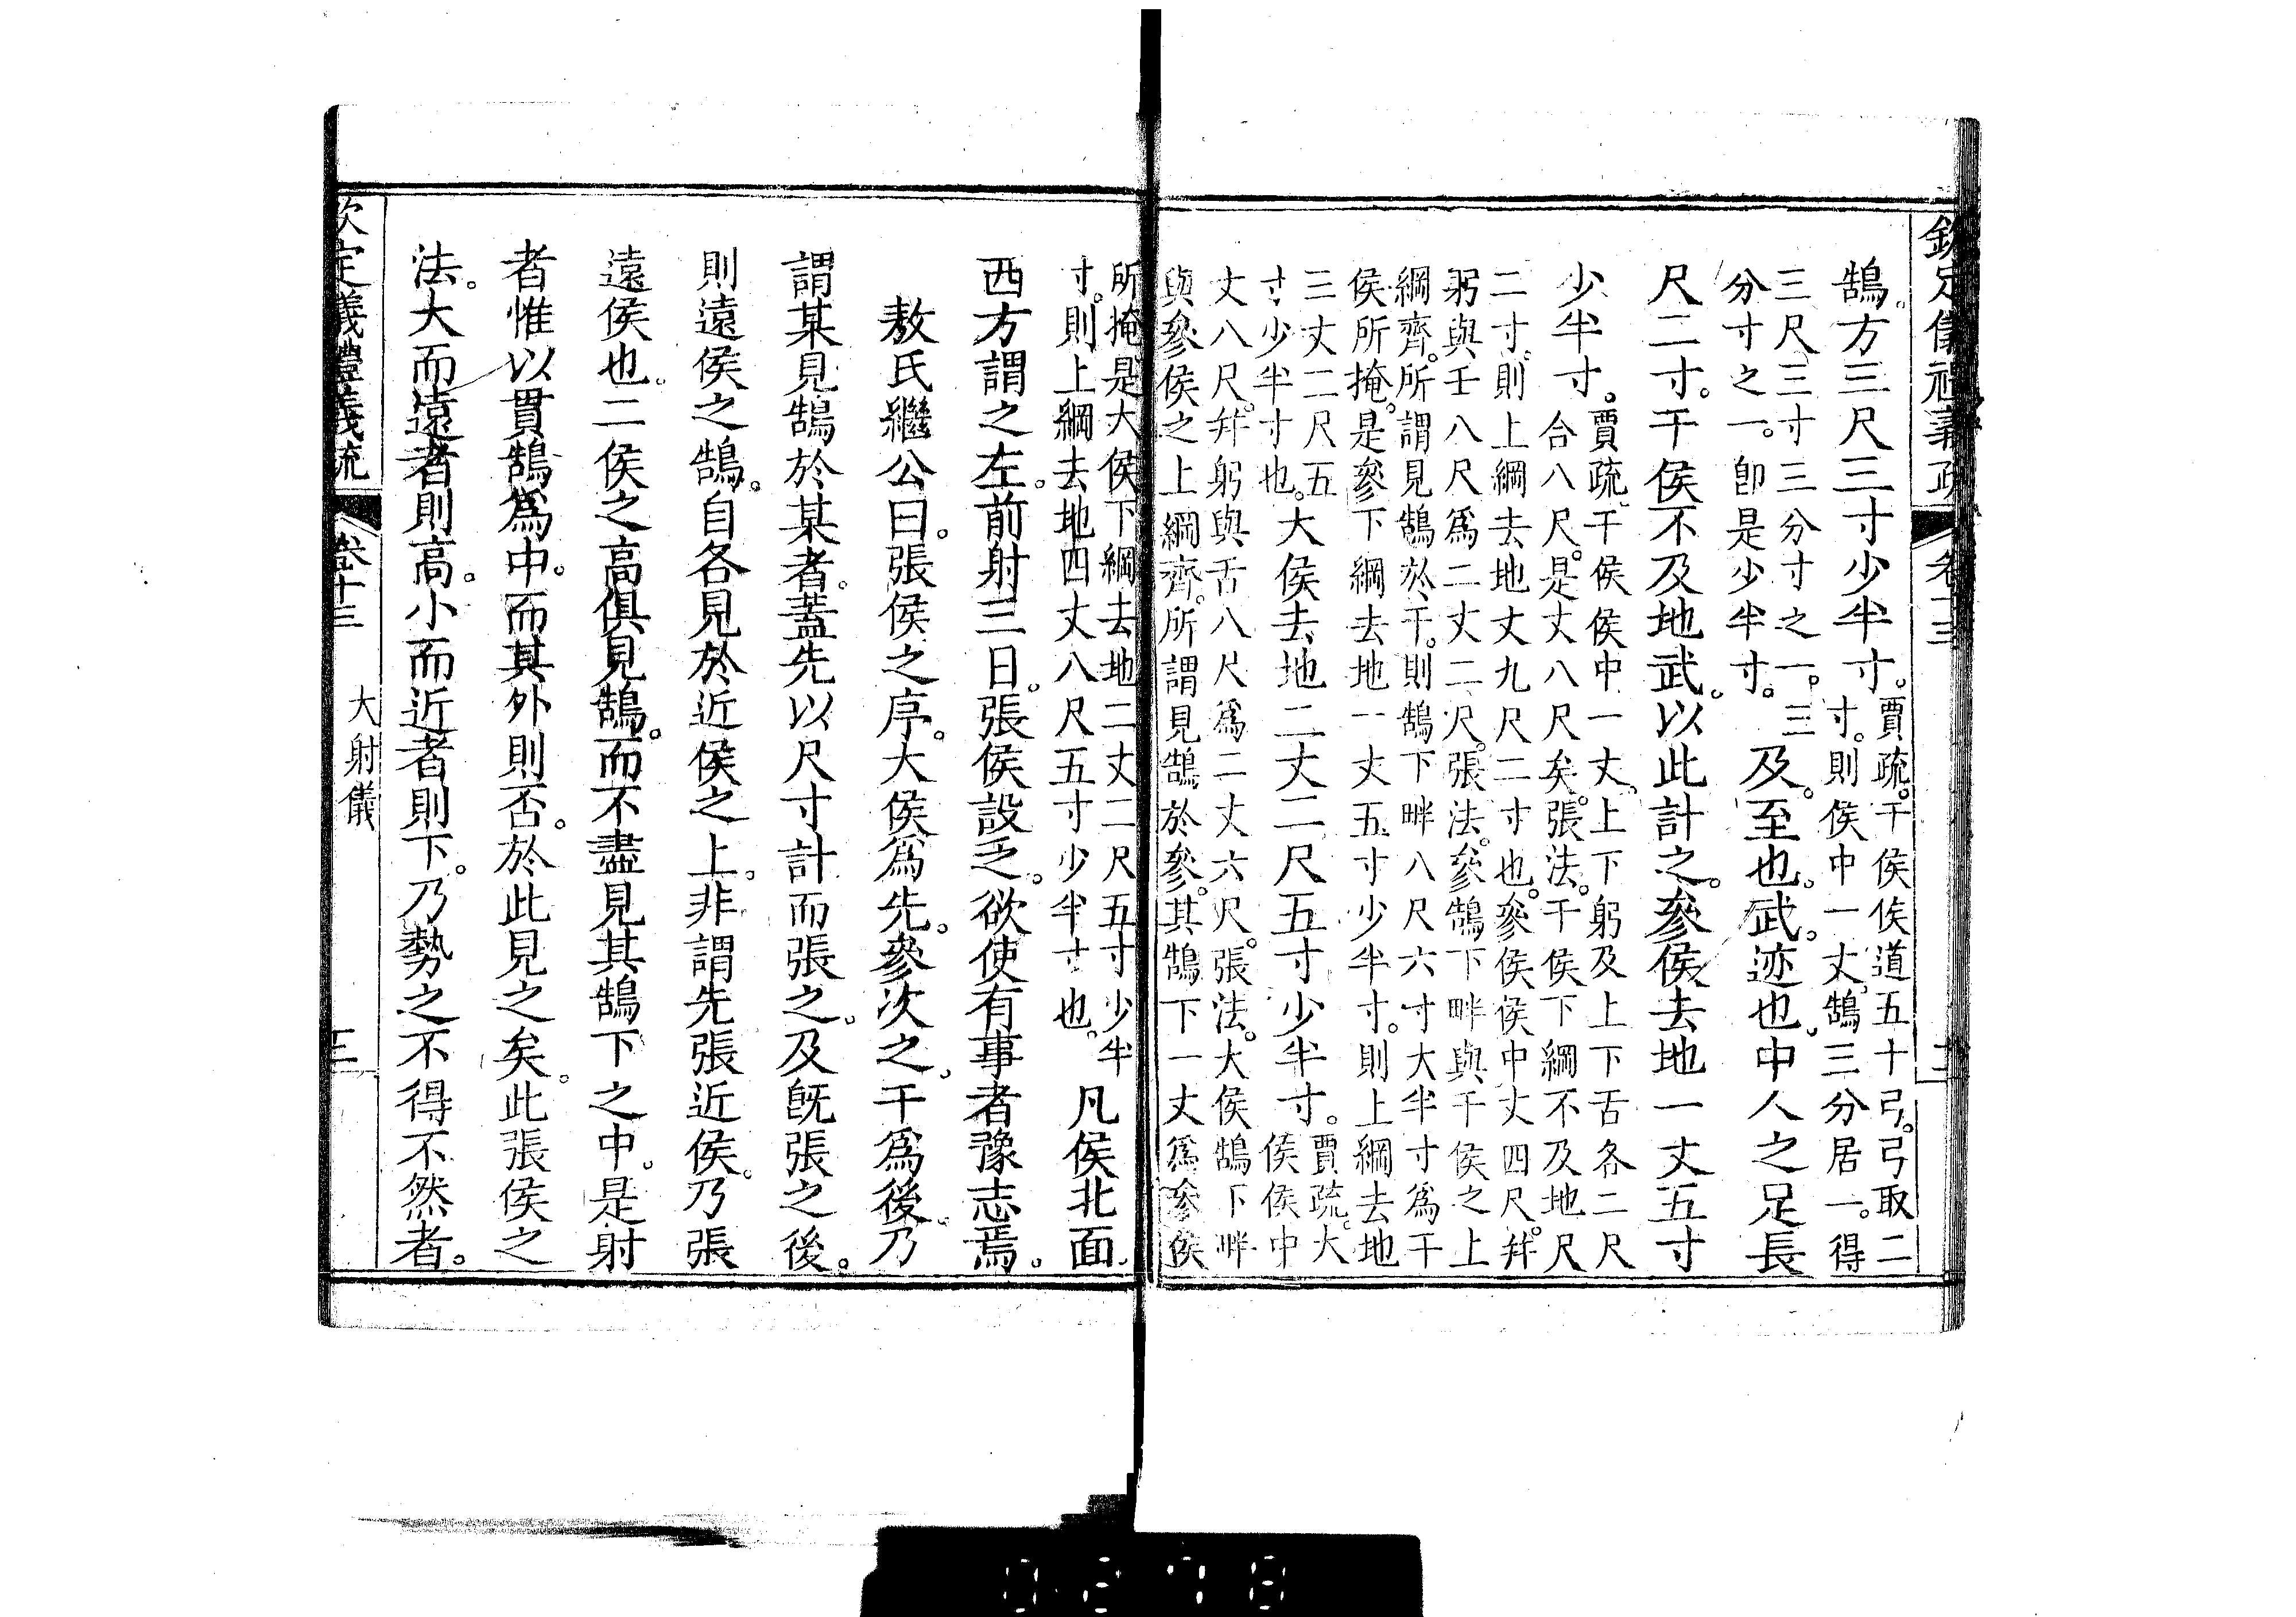 欽定儀禮義疏 卷十三
鵠。方三尺三寸少半寸。賈疏。干侯侯道五十弓。弓取二
寸。則侯中一丈。鵠三分居一。得
三尺三寸三分寸之一。三
分寸之一。卽是少半寸。及。至也。武。迹也。中人之足長
尺二寸。干侯不及地武。以此計之。參侯去地一丈五寸
少半寸。賈疏。干侯侯中一丈。上下躬及上下舌各二尺
合八尺。是丈八尺矣。張法。干侯下綱不及地尺
二寸。則上綱去地丈九尺二寸也。參侯侯中丈四尺。幷
躬與舌八尺爲二丈二尺。張法。參鵠下畔與干侯之上
綱齊。所謂見鵠於干。則鵠下畔八尺六寸大半寸爲干
侯所掩。是參下綱去地一丈五寸少半寸。則上綱去地
三丈二尺五
寸少半寸也。大侯去地二丈二尺五寸少半寸。賈疏。大
侯侯中
丈八尺。幷躬與舌八尺爲二丈六尺。張法。大侯鵠下畔
與參侯之上綱齊。所謂見鵠於參。其鵠下一丈爲參侯
所掩。是大侯下綱去地二丈二尺五寸少半
寸。則上綱去地四丈八尺五寸少半寸也。凡侯北面。
西方謂之左。前射三日。張侯設乏。欲使有事者豫志焉。
敖氏繼公曰。張侯之序。大侯爲先。參次之。干爲後。乃
謂某見鵠於某者。蓋先以尺寸計而張之。及旣張之後。
則遠侯之鵠。自各見於近侯之上。非謂先張近侯。乃張
遠侯也。二侯之高俱見鵠。而不盡見其鵠下之中。是射
者惟以貫鵠爲中。而其外則否。於此見之矣。此張侯之
法。大而遠者則高。小而近者則下。乃勢之不得不然者。
欽定儀禮義疏 卷十三 大射儀 三